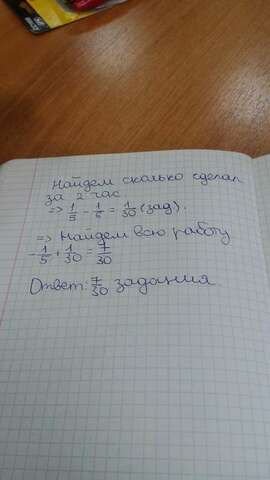 Найдем сколько сделал
за 2 час
=> 1/5 - 1/6 = 1/30 (зад).
=> Найдем всю работу
- 1/5 + 1/30 = 7/30
Ответ: 7/30 задания.